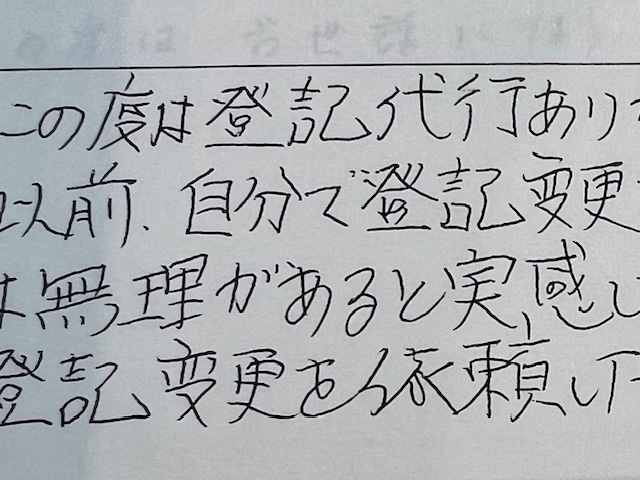 この度は登記代行あり
以前、自分で登記変更
は無理があると実感し
登記変更を依頼した